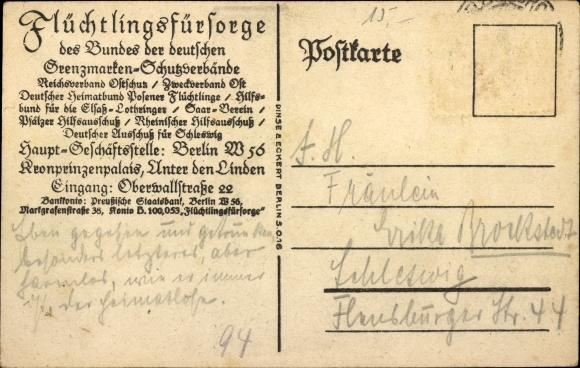 Flüchtlingsfürsorge
des Bundes der deutschen
Grenzmarken-Schutzverbände
Reichsverband Ostschutz / Zweckverband Ost
Deutscher Heimatbund Posener Flüchtlinge / Hilfs-
bund für die Elsaß-Lothringer / Saar-Verein /
Pfälzer Hilfsausschuß / Rheinischer Hilfsausschuß /
Deutscher Ausschuß für Schleswig
Haupt-Geschäftsstelle: Berlin W 56
Kronprinzenpalais, Unter den Linden
Eingang: Oberwallstraße 22
Bankkonto: Preußische Staatsbank, Berlin W 56,
Markgrafenstraße 38, Konto H. 100,053 „Flüchtlingsfürsorge"
Eben gegessen und getrunken
besonders letzteres, aber
harmlos, wie er immer
der Heimatlose.
94
DINSE & ECKERT BERLIN S.O.16
15,-
Postkarte
Fräulein
Erika Brockstedt
Schleswig
Flensburger Str. 44